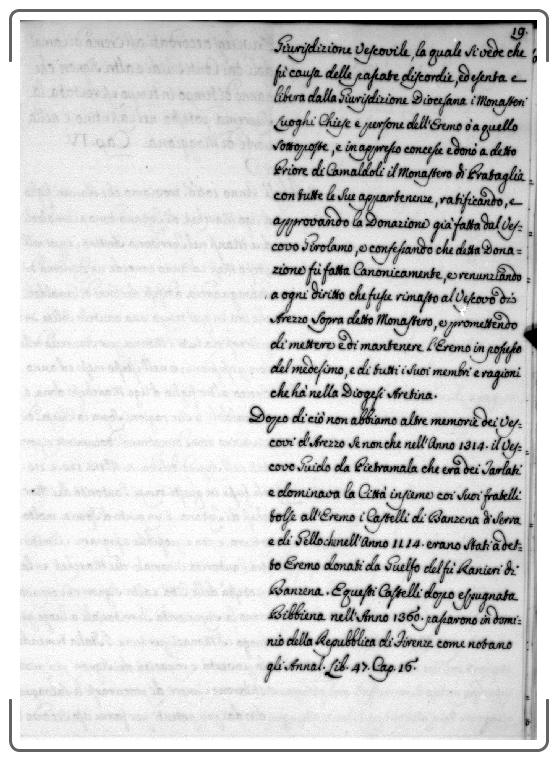 19.
Giurisdizione Vescovile, la quale si vede che
fù causa delle passate discordie, ed esenta e
libera dalla Giurisdizione Diocesana i Monasteri
Luoghi Chiese e persone dell'Eremo ò a quello
sottoposte, e in appresso concese e donò a detto
Priore di Camaldoli il Monastero di Prataglia
con tutte le sue appartenenze, ratificando, e
approvando la Donazione già fatta dal Ves=
covo Girolamo, e confessando che detta Dona=
zione fù fatta Canonicamente, e renunziando
a ogni diritto che fusse rimasto al Vescovo di
Arezzo Sopra detto Monastero, e promettendo
di mettere e di mantenere l'Eremo in possesso
del medesimo, e di tutti i suoi membri e ragioni
che hà nella Diogesi Aretina.
Dopo di ciò non abbiamo altre memorie dei Ves=
covi d'Arezzo se non che nell'Anno 1314. il Ves=
covo Guido da Pietramala che era dei Tarlati
e dominava la Città insieme coi suoi fratelli
tolse all'Eremo i Castelli di Banzena di Serra
e di Gello che nell'Anno 1114. erano Stati a det=
to Eremo donati da Guelfo del fù Ranieri di
Banzena. E questi Castelli dopo espugnata
Bibbiena nell'Anno 1360. passarono in domi=
nio della Repubblica di Firenze come notano
gli Annal. Lib. 47. Cap. 16.